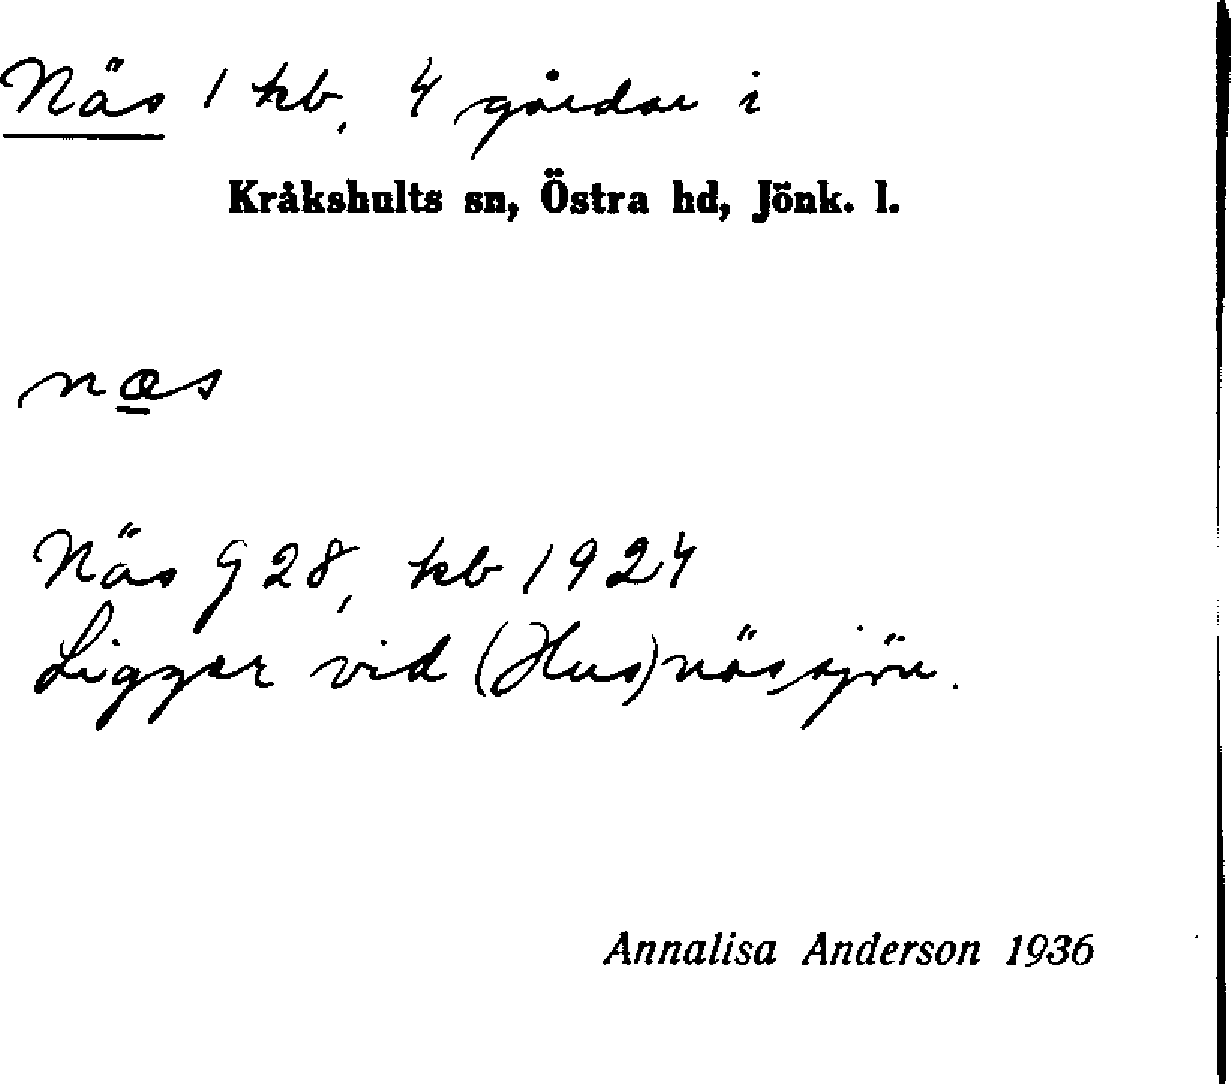 Näs 1 kb, 4 gårdar i
Kråkshults sn, Östra hd, Jönk. l.
næs
Näs G 28, kb 1924
Ligger vid (Hus)nässjön.
Annalisa Anderson 1936